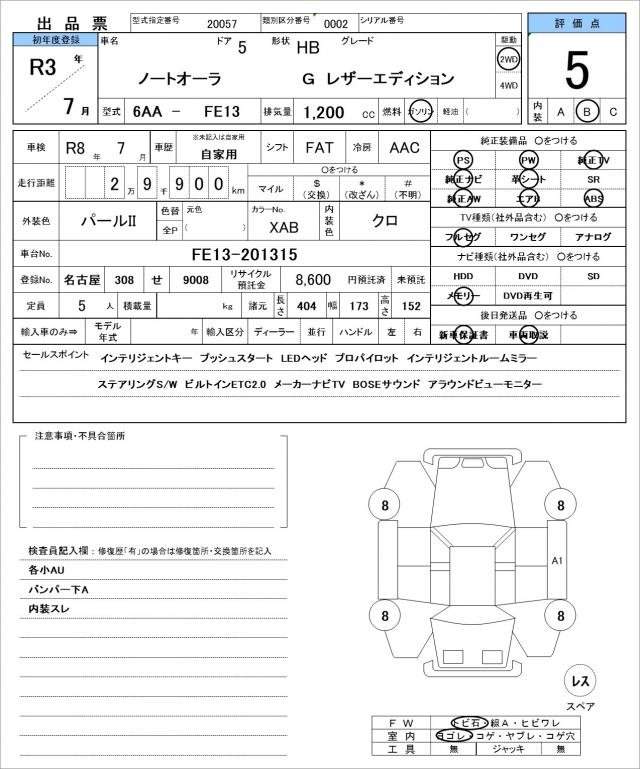 出品票 型式指定番号 20057 類別区分番号 0002 シリアル番号
評価点
初年度登録 車名 ドア 5 形状 HB グレード 駆動
R3 年 ノートオーラ G レザーエディション 2WD 5
7 月 4WD
型式 6AA － FE13 排気量 1,200 cc 燃料 ガソリン 軽油 ( ) 内装 A B C
車検 R8 年 7 月 車歴 ※未記入は自家用 自家用 シフト FAT 冷房 AAC
純正装備品 〇をつける
PS PW 純正TV
走行距離 2 万 9 千 9 0 0 km 〇をつける
マイル $ (交換) * (改ざん) # (不明)
純正ナビ 革シート SR
純正AW エアB ABS
外装色 パールII 色替 元色 全P ( ) カラーNo. XAB 内装色 クロ
TV種類(社外品含む) 〇をつける
フルセグ ワンセグ アナログ
車台No. FE13-201315
ナビ種類(社外品含む) 〇をつける
登録No. 名古屋 308 せ 9008 リサイクル預託金 8,600 円預託済 未預託
HDD DVD SD
定員 5 人 積載量 kg 諸元 長さ 404 幅 173 高さ 152
メモリー DVD再生可
後日発送品 〇をつける
輸入車のみ⇒ モデル年式 年 輸入区分 ディーラー 並行 ハンドル 左 右
新車保証書 車両取説
セールスポイント インテリジェントキー プッシュスタート LEDヘッド プロパイロット インテリジェントルームミラー
ステアリングS/W ビルトインETC2.0 メーカーナビTV BOSEサウンド アラウンドビューモニター
注意事項・不具合箇所
検査員記入欄：修復歴「有」の場合は修復箇所・交換箇所を記入
各小AU
バンパー下A
内装スレ
8 8
A1
8 8
レス
スペア
FW トビ石・線A・ヒビワレ
室内 ヨゴレ・コゲ・ヤブレ・コゲ穴
工具 無 ジャッキ 無